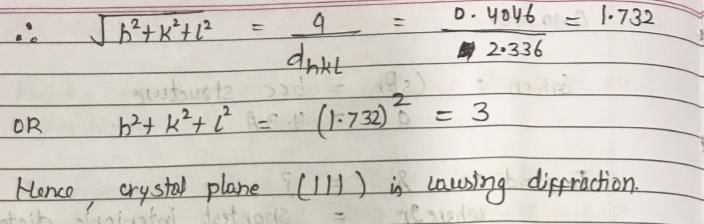 ∴ √h²+k²+l² = a / d_hkl = 0.4046 / 2.336 = 1.732
OR h²+k²+l² = (1.732)² = 3
Hence, crystal plane (111) is causing diffraction.